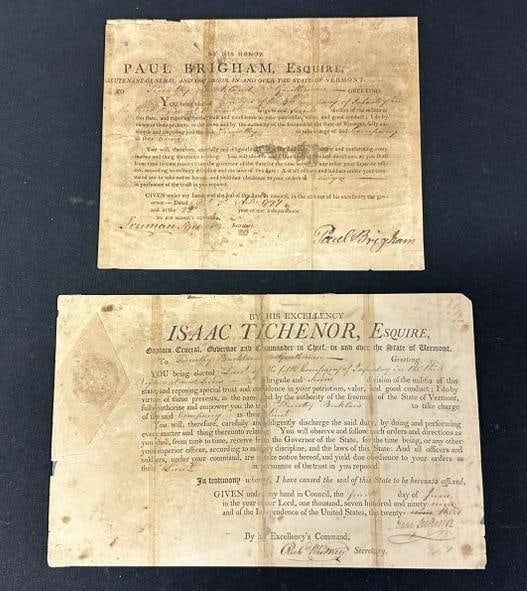 BY HIS HONOR
PAUL BRIGHAM, ESQUIRE,
LIEUTENANT-GENERAL, AND GOVERNOR, IN AND OVER THE STATE OF VERMONT.
TO Timothy Buckland Gentleman GREETING.
YOU being elected of the Company of Infantry in
brigade and division of the militia of
this state, and reposing special trust and confidence in your patriotism, valor, and good conduct; I do by
virtue of these presents, in the name and by the authority of the freemen of the State of Vermont, fully au-
thorise and empower you the said Timothy to take charge of said Company
as their
You will, therefore, carefully and diligently discharge the said duty, by doing and performing every
matter and thing thereunto relating. You will observe and follow such orders and directions as you shall
from time to time receive from the governor of the state for the time being, or any other your superior officer,
according to military discipline and the laws of this state: And all officers and soldiers under your com-
mand are to take notice hereof, and yield due obedience to your orders as
in pursuance of the trust in you reposed.
GIVEN under my hand and the seal of this state in council, in the absence of his excellency the gov-
ernor.—Dated A.D. 1797
and in the year of our Independence.
BY HIS HONOR'S COMMAND,
Truman Squier Secretary.
Paul Brigham
BY HIS EXCELLENCY
ISAAC TICHENOR, ESQUIRE,
Captain General, Governor and Commander in Chief, in and over the State of Vermont.
To Timothy Buckland Gentleman Greeting.
YOU being elected Lieut of the fifth Company of Infantry in the third
Regiment Second brigade and division of the militia of this
state, and reposing special trust and confidence in your patriotism, valor, and good conduct; I do by
virtue of these presents, in the name and by the authority of the freemen of the State of Vermont,
fully authorise and empower you the said Timothy Buckland to take charge
of the said Company as their Lieut
You will, therefore, carefully and diligently discharge the said duty, by doing and performing
every matter and thing thereunto relating. You will observe and follow such orders and directions as
you shall, from time to time, receive from the Governor of the State, for the time being, or any other
your superior officer, according to military discipline, and the laws of this State: And all officers and
soldiers, under your command, are to take notice hereof, and yield due obedience to your orders, as
their Lieut in pursuance of the trust in you reposed.
In testimony whereof, I have caused the seal of this State to be hereunto affixed,
GIVEN under my hand in Council, the fourth day of June
in the year of our Lord, one thousand, seven hundred and ninety
and of the Independence of the United States, the twenty- third
Isaac Tichenor
By his Excellency's Command,
Rich Whitney Secretary.